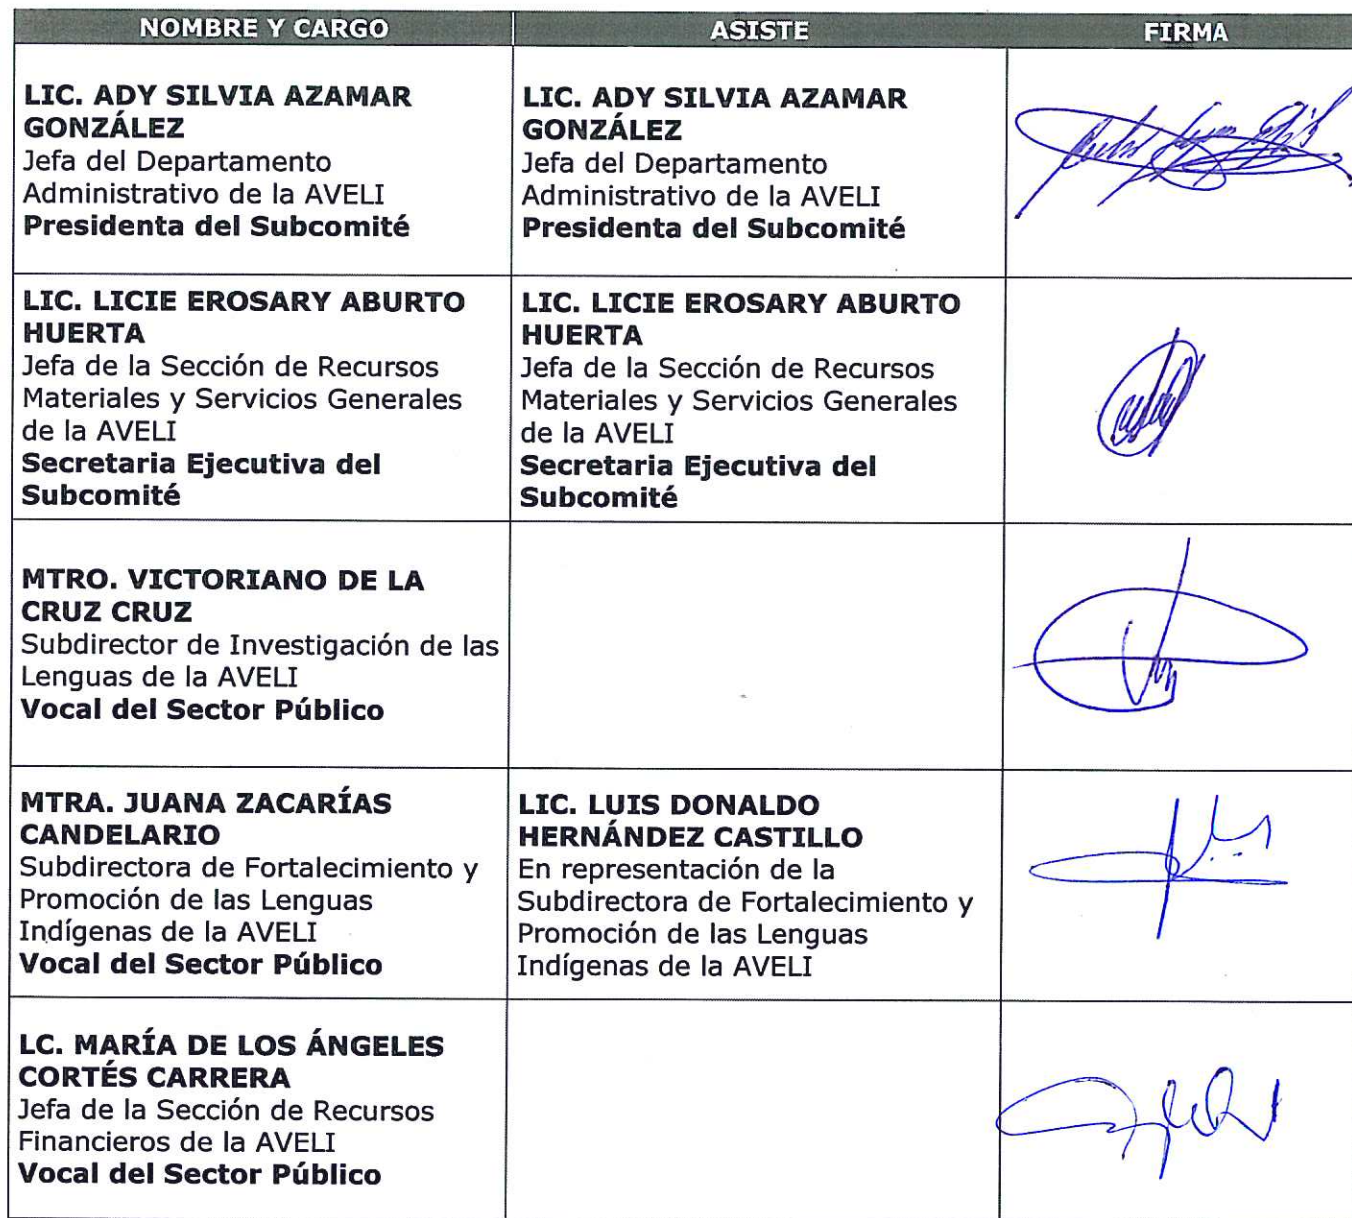 NOMBRE Y CARGO
ASISTE
FIRMA
LIC. ADY SILVIA AZAMAR
GONZÁLEZ
Jefa del Departamento
Administrativo de la AVELI
Presidenta del Subcomité
LIC. ADY SILVIA AZAMAR
GONZÁLEZ
Jefa del Departamento
Administrativo de la AVELI
Presidenta del Subcomité
LIC. LICIE EROSARY ABURTO
HUERTA
Jefa de la Sección de Recursos
Materiales y Servicios Generales
de la AVELI
Secretaria Ejecutiva del
Subcomité
LIC. LICIE EROSARY ABURTO
HUERTA
Jefa de la Sección de Recursos
Materiales y Servicios Generales
de la AVELI
Secretaria Ejecutiva del
Subcomité
MTRO. VICTORIANO DE LA
CRUZ CRUZ
Subdirector de Investigación de las
Lenguas de la AVELI
Vocal del Sector Público
MTRA. JUANA ZACARÍAS
CANDELARIO
Subdirectora de Fortalecimiento y
Promoción de las Lenguas
Indígenas de la AVELI
Vocal del Sector Público
LIC. LUIS DONALDO
HERNÁNDEZ CASTILLO
En representación de la
Subdirectora de Fortalecimiento y
Promoción de las Lenguas
Indígenas de la AVELI
LC. MARÍA DE LOS ÁNGELES
CORTÉS CARRERA
Jefa de la Sección de Recursos
Financieros de la AVELI
Vocal del Sector Público